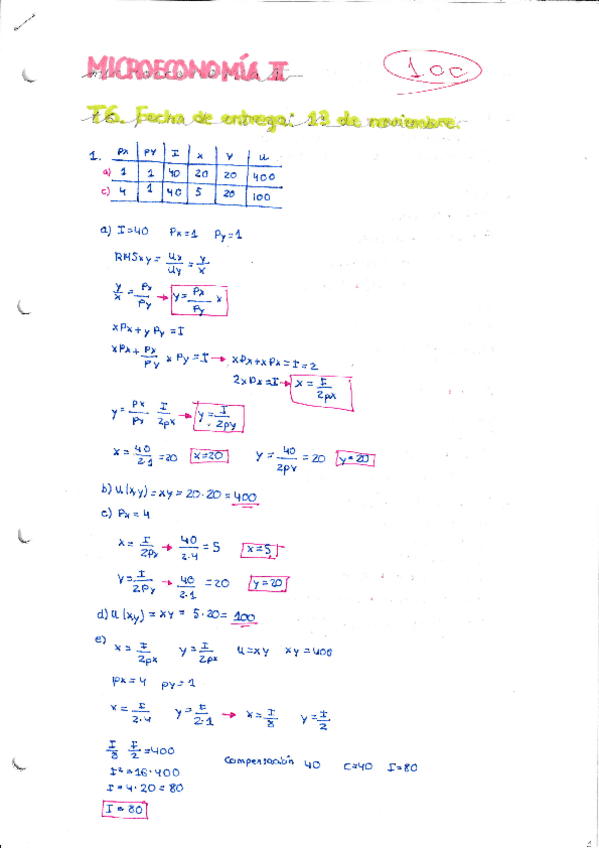 MICROECONOMÍA II
100
T6. Fecha de entrega: 13 de noviembre.
1. Px Py I x y u
a) 1 1 40 20 20 400
c) 4 1 40 5 20 100
a) I=40 Px=1 Py=1
RMSxy = ux/uy = y/x
y/x = Px/Py → y = Px/Py x
xPx + yPy = I
xPx + Px/Py x Py = I → xPx + xPx = I = 2
2xPx = I → x = I/2px
y = Px/Py I/2px → y = I/2py
x = 40/2·1 = 20 x=20 y = 40/2py = 20 y=20
b) u(xy) = xy = 20·20 = 400
c) Px = 4
x = I/2px → 40/2·4 = 5 x=5
y = I/2py → 40/2·1 = 20 y=20
d) u(xy) = xy = 5·20 = 100
e) x = I/2px y = I/2px u=xy xy=400
px=4 py=1
x = I/2·4 y = I/2·1 → x = I/8 y = I/2
I/8 I/2 = 400
I² = 16·400 compensación 40 C=40 I=80
I = 4·20 = 80
I = 80